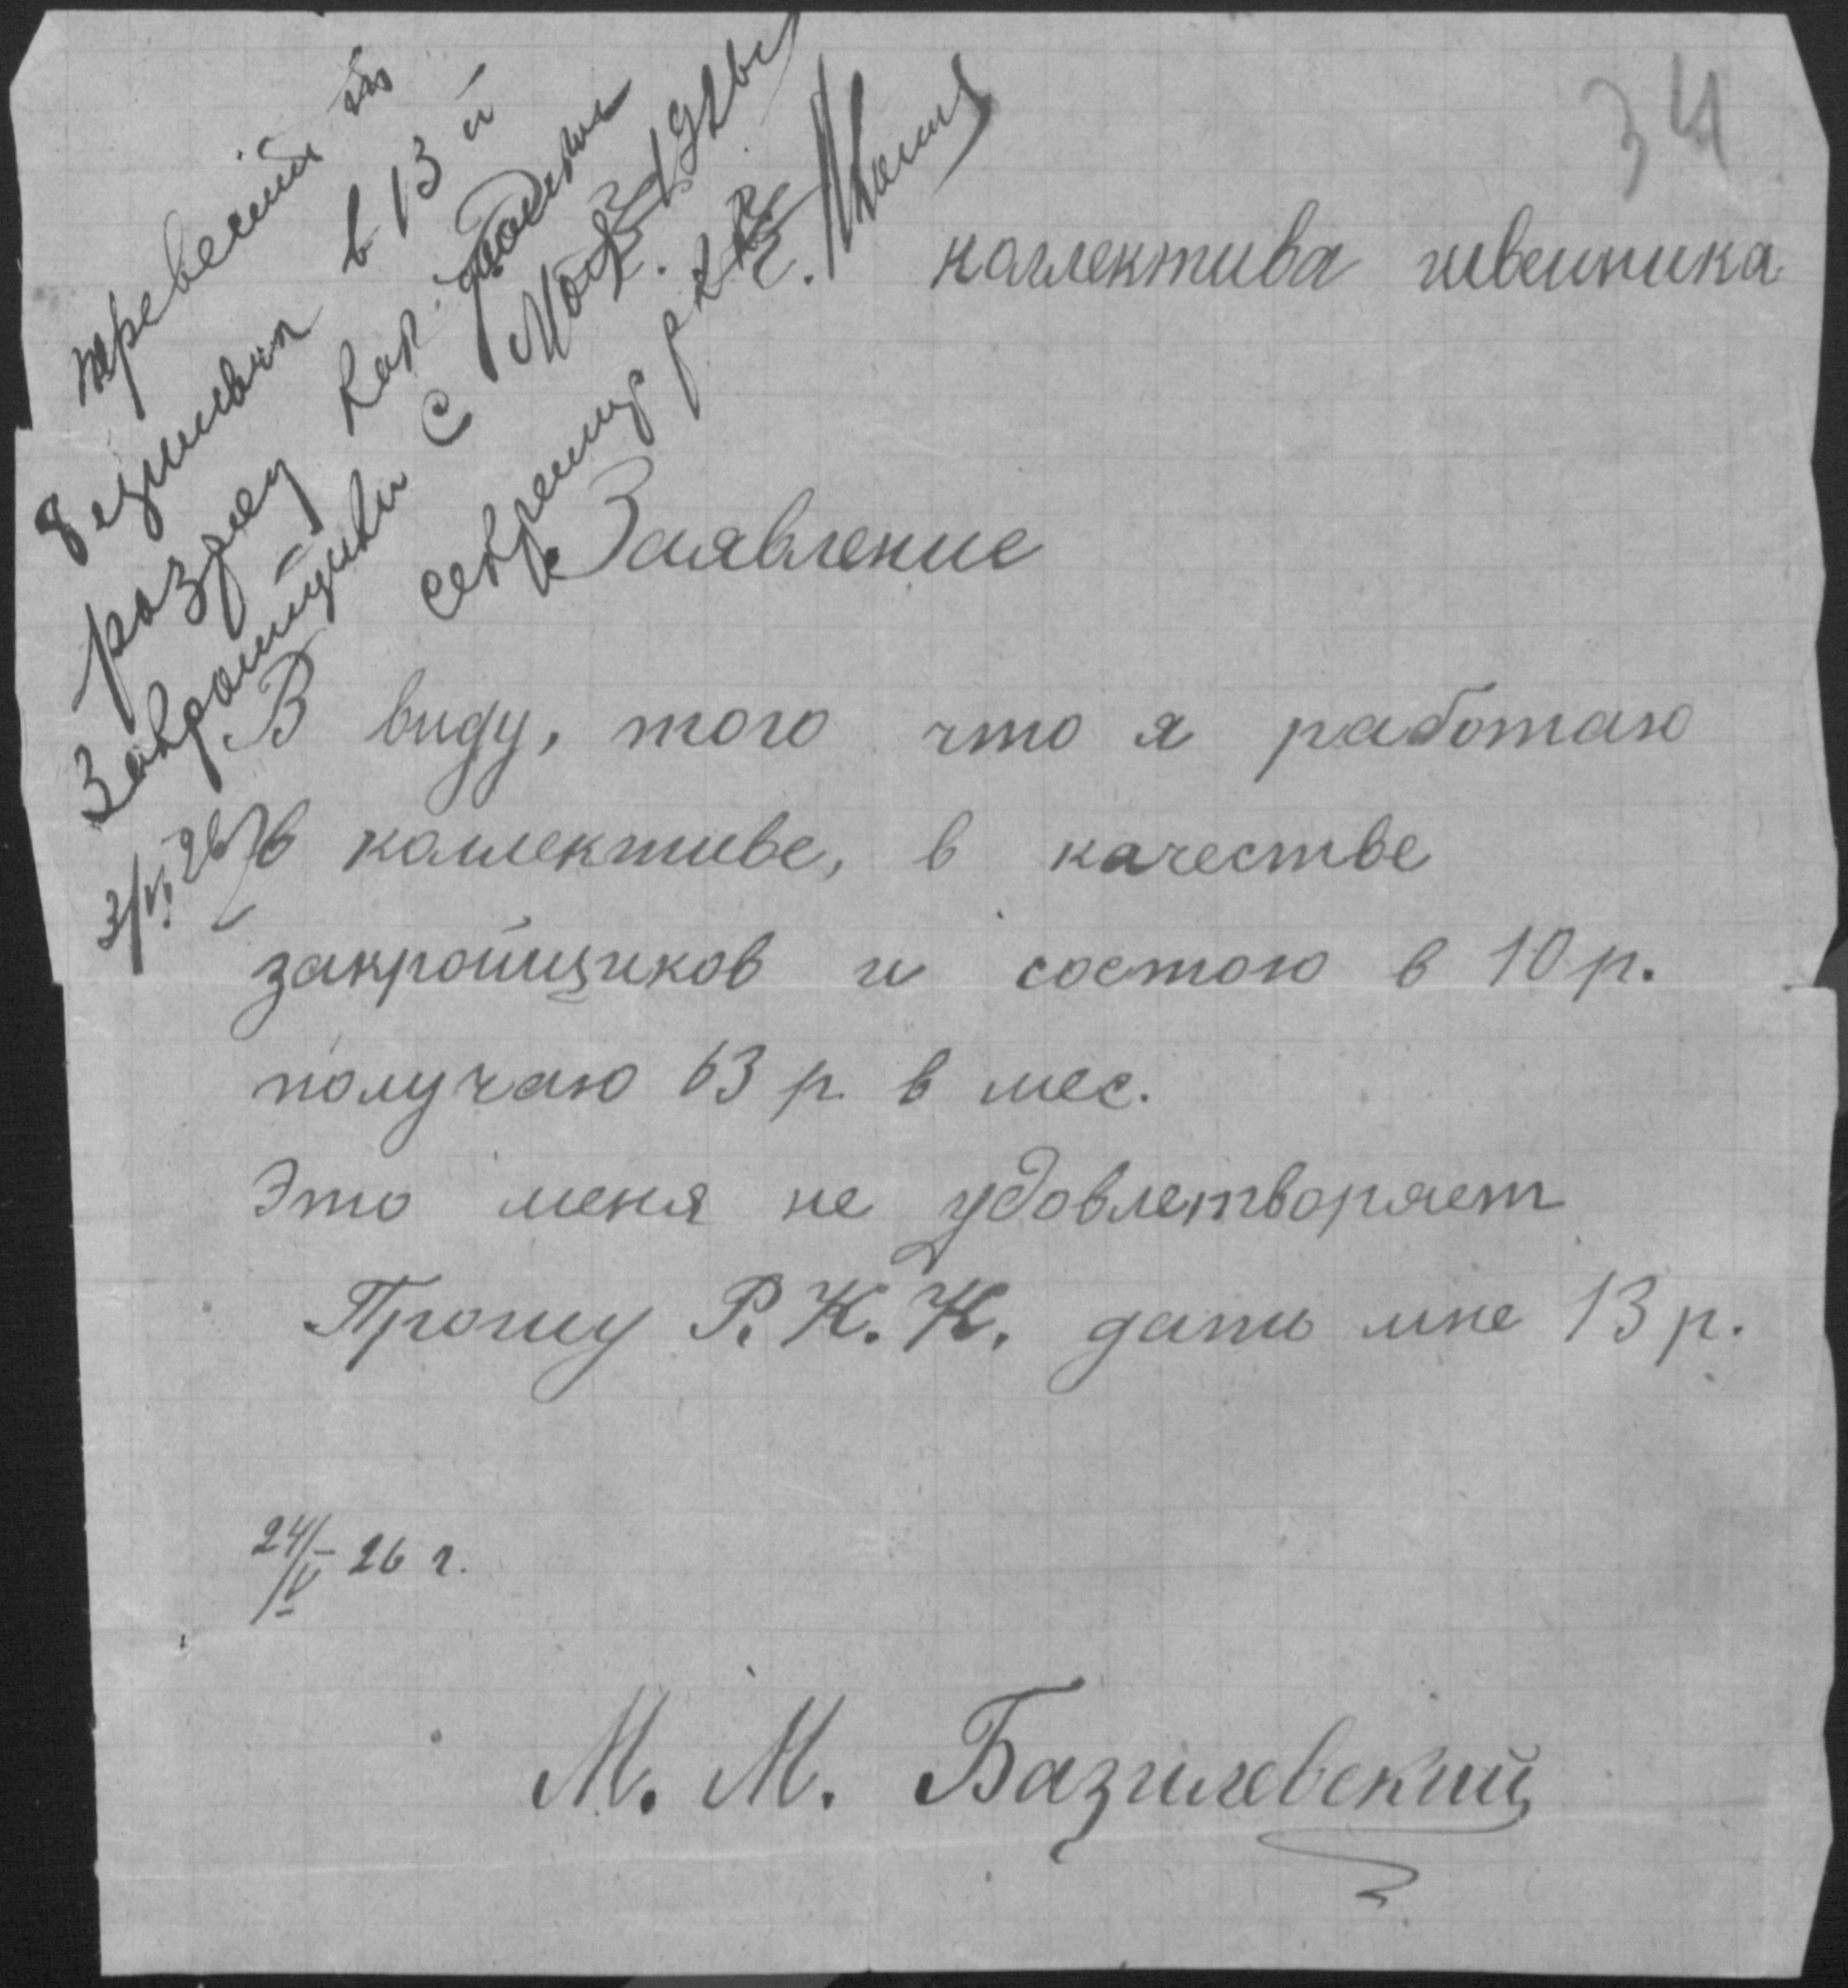 34
коллектива швейника
перевести т.
в 13 й
разряд как
закройщика с 192
секретарь РКК
3/VI 26
Заявление
В виду, того что я работаю
в коллективе, в качестве
закройщиков и состою в 10 р.
получаю 63 р. в мес.
Это меня не удовлетворяет
Прошу Р. К. К. дать мне 13 р.
24/V 26 г.
М. М. Базилевский